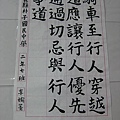 騎車至行人穿越
道應讓行人優先
通過切忌與行人
爭道
國民中學 二年七班